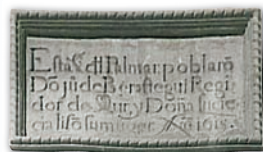 Esta Cª dl Palmar poblarō
Dō jū de Berastegui Regi
dor de Mur y Doña lucre
cia lisō su muger Año 1615.